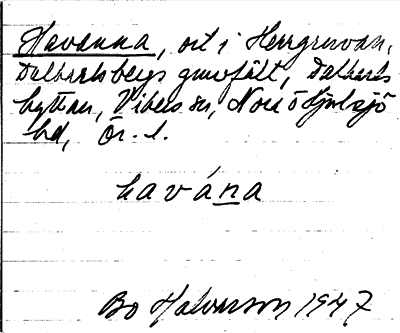 Havanna, ort i Herrgruvan,
Dalkarlsbergs gruvfält, Dalkarls
hyttan, Vikers sn, Nora o Hjulsjö
bd, Ör. l.
havána
Bo Halvarson 1947